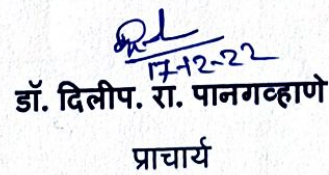 17-12-22
डॉ. दिलीप. रा. पानगव्हाणे
प्राचार्य